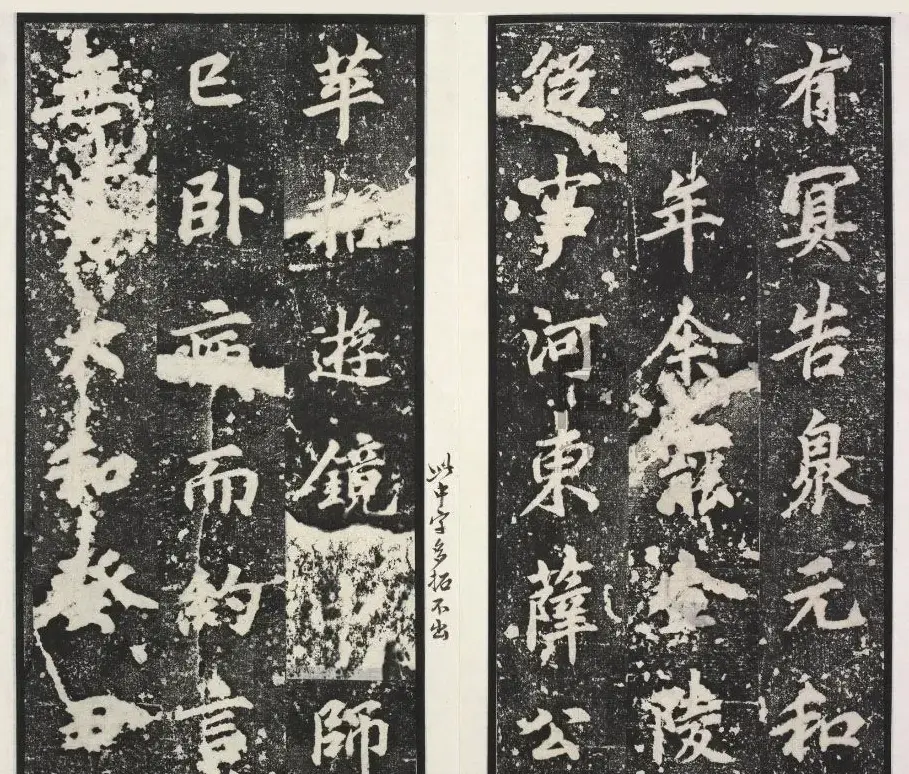 有冥告泉元和
三年余罷金陵
從事河東薛公
此中字多拓不出
苹招遊鏡師
已卧疾而約言
無大和癸丑